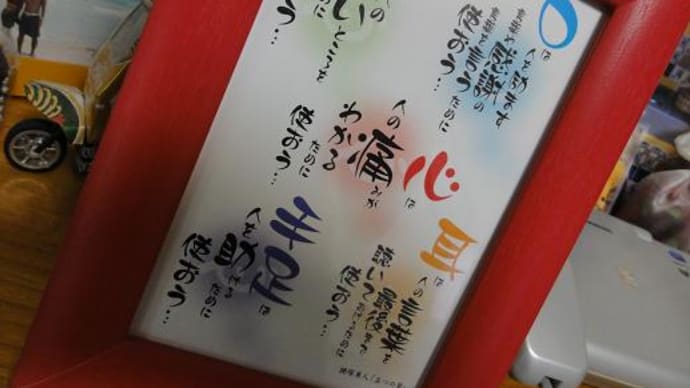 口は
人をはげます
言葉や感謝の
言葉を言うために
使おう…
耳は
人の言葉を
最後まで
聴いてあげるために
使おう…
心は
人の痛みが
わかる
ために
使おう…
の
いところを
ために
う…
手足は
人を助ける
ために
使おう…
腰塚勇人「五つの誓